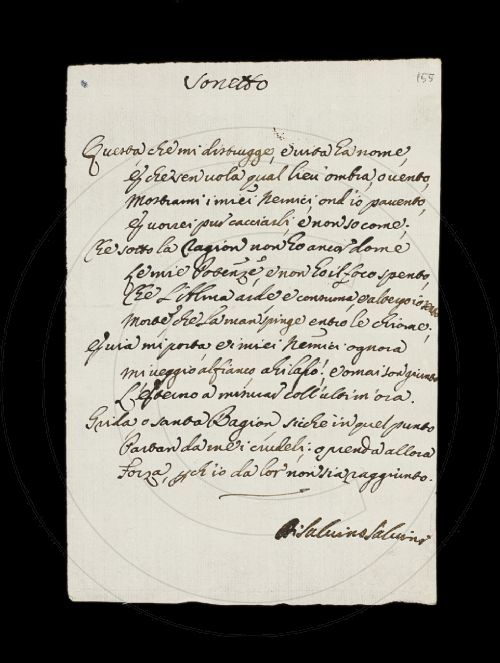 Sonetto
155
Questa, che mi distrugge, e vita ha nome,
E che sen vola qual lieu ombra, o vento,
Mostrami i miei Nemici ond'io pavento,
E vorrei pur cacciarli, e non so come;
Che sotto la Ragion non ho ancor dome
Le mie Potenze, e non ho il foco spento,
Che l'Alma arde e consuma, e albergo io sento
Morte, che la man spinge entro le chiome;
E via mi porta e i miei Nemici ognora
Mi veggio al fianco, e omai son giunto
L'esterno a minuar coll'ultim'ora.
Grida o santa Ragion, sicche in quel punto
Partan da me i crudeli: o prenda allora
Forza, ch'io da lor non sia raggiunto.
Di Salvino Salvini